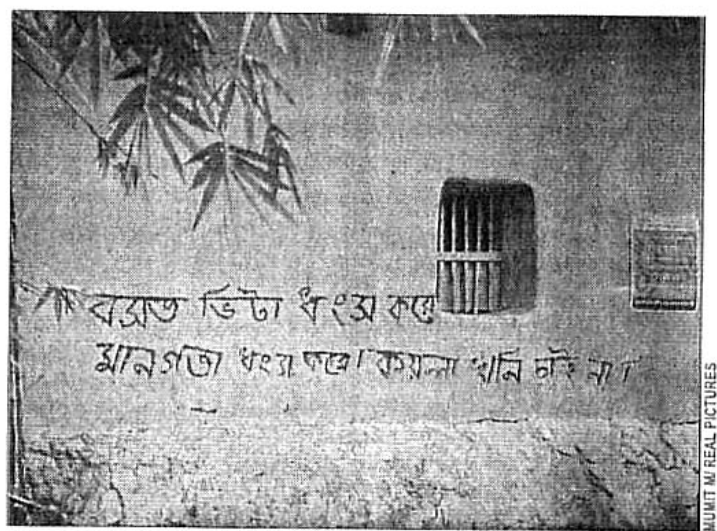 বসত ভিটা ধংস করে
মানসতা ধংস করে। কয়লা খনি চাই না।
UMIT M/ REAL PICTURES